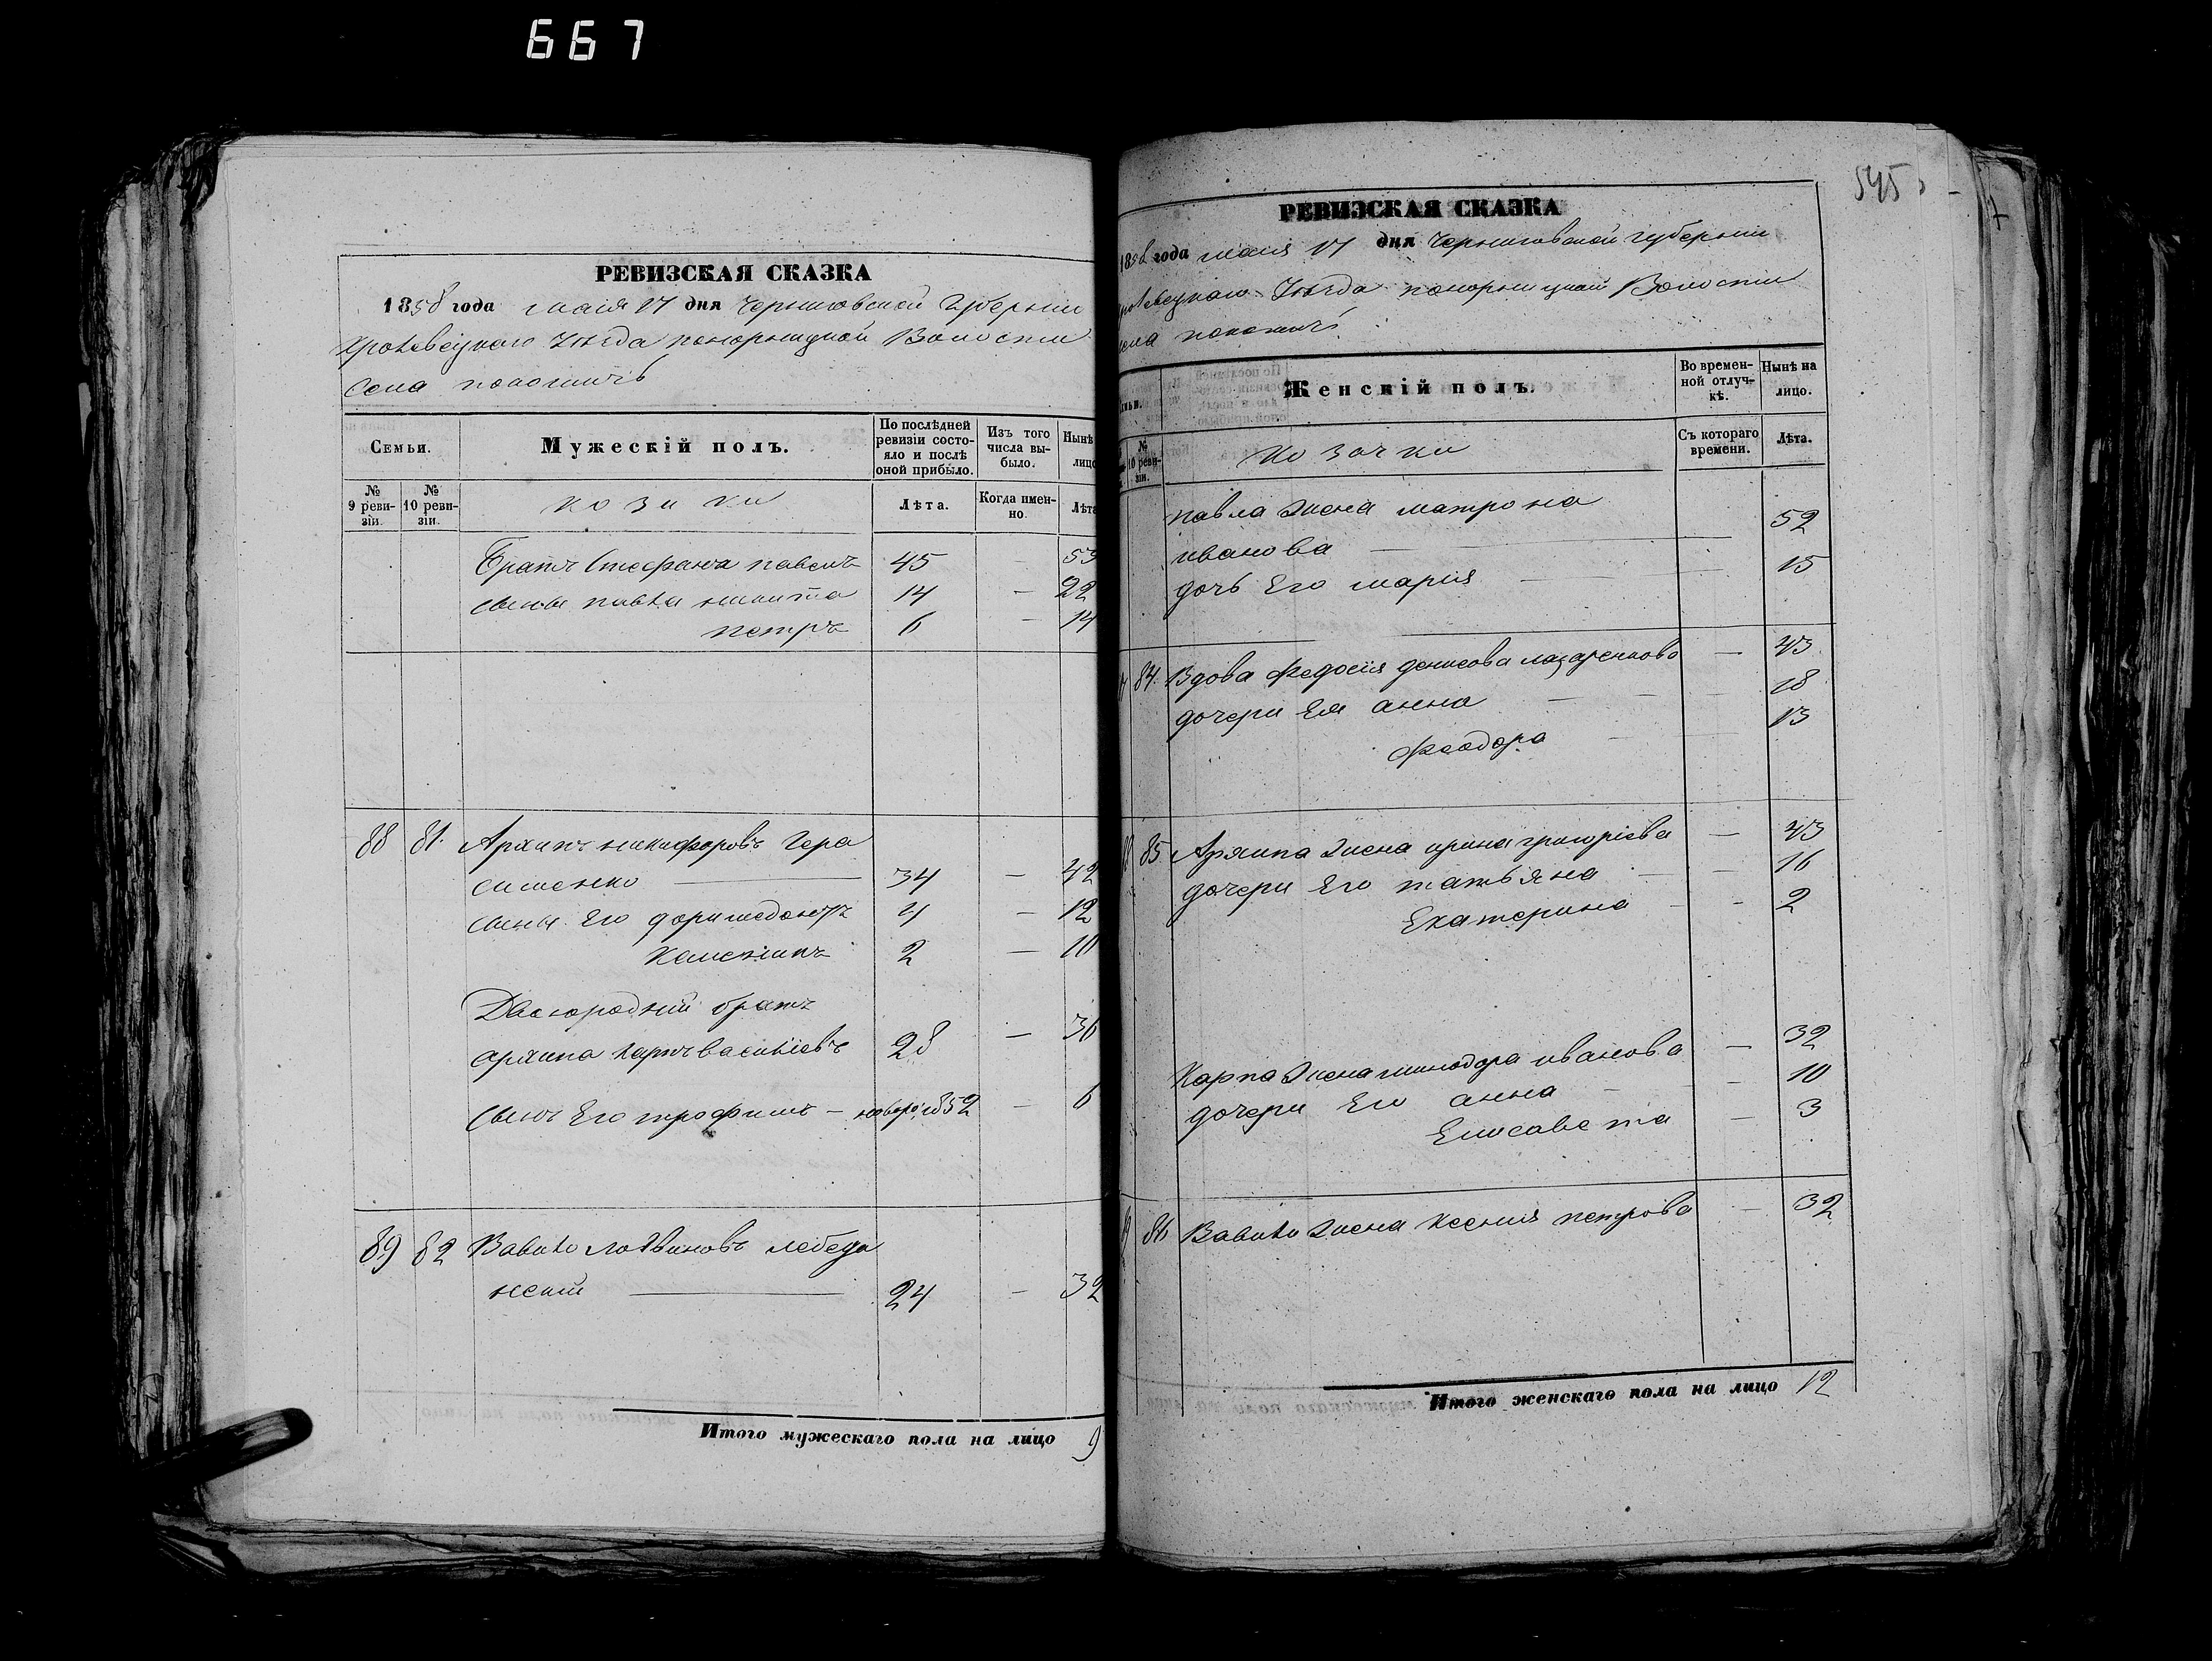 667
РЕВИЗСКАЯ СКАЗКА
1858 года маія 17 дня Черниговской Губерніи
Кролевецкаго Уезда понорницкой Волости
Села покошичь
Семьи.
Мужескій полъ.
По послѣдней ревизіи состояло и послѣ оной прибыло.
Изъ того числа выбыло.
Нынѣ лицо
№ 9 ревизіи.
№ 10 ревизіи.
козаки
Лѣта.
Когда именно.
Лѣта
Братъ Стефана павелъ 45 — 53
сыны павла никита 14 — 22
петръ 6 — 14
88 81. Архипъ никифоровъ Гера
сименко — 34 — 42
сыны Его доримедонтъ 4 — 12
2 — 10
Двоюродній братъ
архипа карпъ васильевъ 28 — 36
сынъ Его трофимъ — новоро. 1852 — 6
89 82 Вавило логвиновъ лебеди
нский — 24 — 32
Итого мужескаго пола на лицо 9
545
РЕВИЗСКАЯ СКАЗКА
1858 года маія 17 дня Черниговской губерніи
ролевецкаго Уезда понорницкой Волости
села покошичь
Женскій полъ.
Во временной отлучкѣ.
Нынѣ на лицо.
№ 10 ревизіи.
козачки
Съ котораго времени.
Лѣта.
павла жена матрона
иванова — 52
дочь Его марія — 15
84. Вдова Федосія денисова лазаренкова — 43
дочери Ея анна — 18
Феодора — 13
85 Архипа жена ирина григоріева — 43
дочери Его татьяна — 16
Екатерина — 2
Карпа жена минодора иванова — 32
дочери Его анна — 10
Елисавета — 3
86 Вавили жена ксенія петрова — 32
Итого женскаго пола на лицо 12